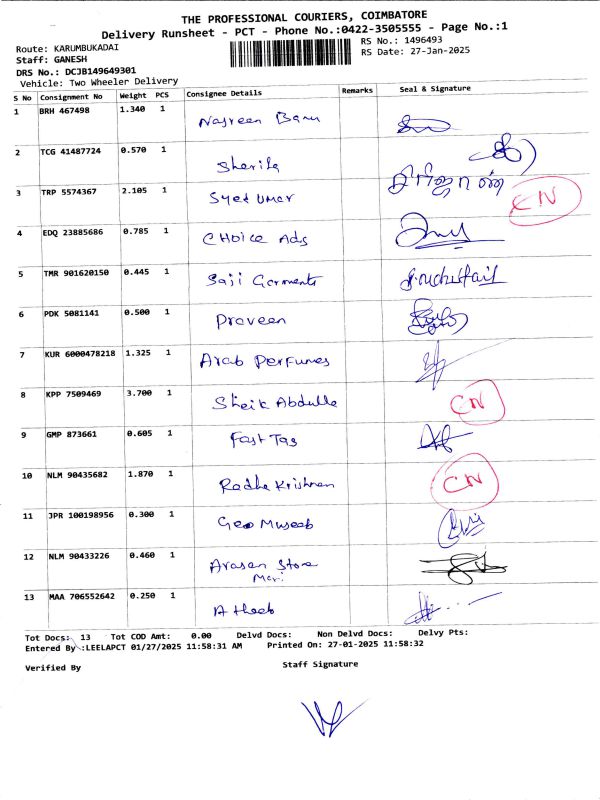 THE PROFESSIONAL COURIERS, COIMBATORE
Delivery Runsheet - PCT - Phone No.:0422-3505555 - Page No.:1
Route: KARUMBUKADAI
RS No.: 1496493
Staff: GANESH
RS Date: 27-Jan-2025
DRS No.: DCJB149649301
Vehicle: Two Wheeler Delivery
S No Consignment No Weight PCS Consignee Details Remarks Seal & Signature
1 BRH 467498 1.340 1 Nasreen Banu
2 TCG 41487724 0.570 1 Sherifa
3 TRP 5574367 2.105 1 Syed Umar CN
4 EDQ 23885686 0.785 1 CHoice Ads
5 TMR 901620150 0.445 1 Saji Garments
6 PDK 5081141 0.500 1 Praveen
7 KUR 6000478218 1.325 1 Arab Perfumes
8 KPP 7509469 3.700 1 Sheik Abdulla CN
9 GMP 873661 0.605 1 Fast Tag
10 NLM 90435682 1.870 1 Radha Krishnan CN
11 JPR 100198956 0.300 1 Geo Museeb
12 NLM 90433226 0.460 1 Arasan Store
Mari
13 MAA 706552642 0.250 1 Atheeb
Tot Docs: 13 Tot COD Amt: 0.00 Delvd Docs: Non Delvd Docs: Delvy Pts:
Entered By :LEELAPCT 01/27/2025 11:58:31 AM Printed On: 27-01-2025 11:58:32
Verified By Staff Signature